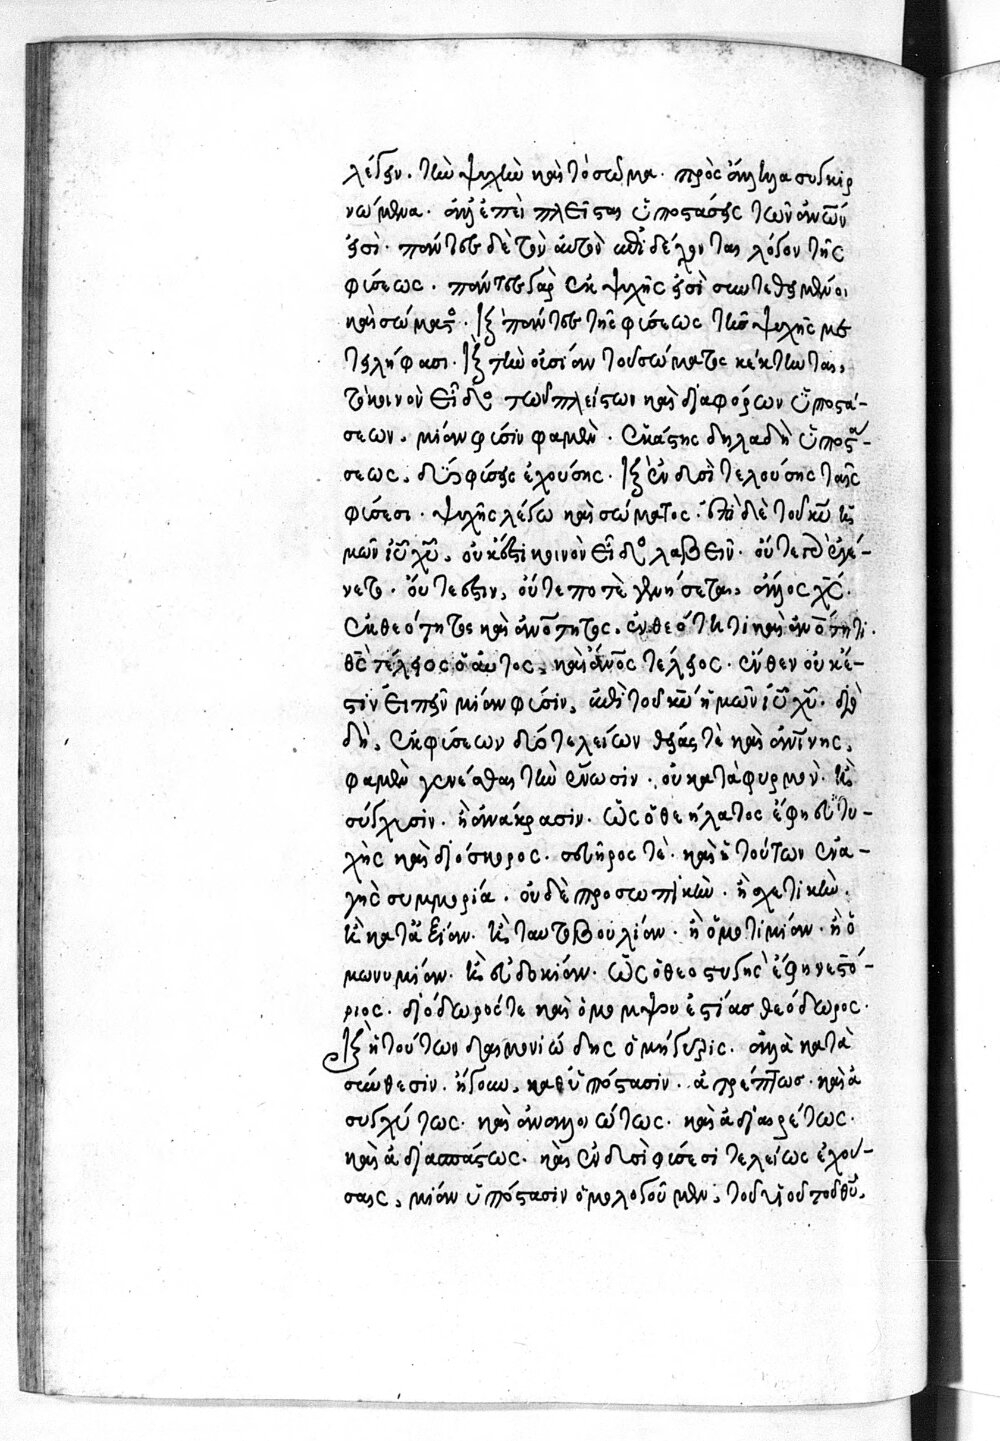 λέγειν. τὴν ψυχὴν καὶ τὸ σῶμα. πρὸς ἄλληλα συγκιρ
νώμενα. ἀλλ' ἐπεὶ πλεῖσται ὑποστάσεις τῶν ἀνῶν
εἰσὶ. πάντες δὲ τὸν αὐτὸν ἐπιδέχονται λόγον τῆς
φύσεως. πάντες γὰρ ἐκ ψυχῆς εἰσὶ συντεθειμένοι
καὶ σώματος. καὶ πάντες τῆς φύσεως τῆς ψυχῆς με
τειλήφασι. καὶ τὴν οὐσίαν τοῦ σώματος κέκτηνται,
τὸ κοινὸν εἶδος τῶν πλείστων καὶ διαφόρων ὑποστά-
σεων. μίαν φύσιν φαμὲν. ἑκάστης δηλαδὴ ὑποστά-
σεως. δύο φύσεις ἐχούσης. καὶ ἐν δυσὶ τελούσης ταῖς
φύσεσι. ψυχῆς λέγω καὶ σώματος. ἐπὶ δὲ τοῦ κυ ἡ
μῶν ιυ χυ, οὐκ ἔστι κοινὸν εἶδος λαβεῖν. οὔτε γὰρ ἐγέ-
νετο. οὔτε ἔστιν, οὔτε ποτὲ γενήσεται, ἄλλος χς.
ἐκ θεότητος καὶ ἀνότητος. ἐν θεότητι καὶ ἀνότητι.
θς τέλειος ὁ αὐτος, καὶ ἀνος τέλειος. ἔνθεν οὐκ ἔ-
στιν εἰπεῖν μίαν φύσιν, ἐπὶ τοῦ κυ ἡμῶν ιυ χυ. διὸ
δὴ, ἐκ φύσεων δύο τελείων θείας τὲ καὶ ἀνίνης,
φαμὲν γενέσθαι τὴν ἕνωσιν. οὐ κατὰ φυρμὸν. ἢ
σύγχυσιν. ἢ ἀνάκρασιν. ὡς ὁ θεήλατος ἔφη εὐτυ-
χὴς καὶ διόσκορος. σευῆρος τὲ. καὶ ἡ τούτων ἐνα-
γὴς συμμορία. οὐδὲ προσωπικὴν. ἢ σχετικὴν.
ἢ κατ' ἀξίαν. ἢ ταυτοβουλίαν. ἢ ὁμοτιμίαν. ἢ ὁ
μωνυμίαν. ἢ εὐδοκίαν. ὡς ὁ θεοστυγὴς ἔφη νεστό-
ριος. διόδωρός τε καὶ ὁ μομψουεστίας θεόδωρος.
καὶ ἡ τούτων δαιμονιώδης ὁμήγυρις. ἀλλὰ κατὰ
σύνθεσιν. ἤγουν, καθ' ὑπόστασιν. ἀτρέπτως. καὶ ἀ
συγχύτως. καὶ ἀναλλοιώτως. καὶ ἀδιαιρέτως.
καὶ ἀδιασπάστως. καὶ ἐν δυσὶ φύσεσι τελείως ἐχού-
σαις, μίαν ὑπόστασιν ὁμολογοῦμεν, τοῦ υἱοῦ τοῦ θυ,